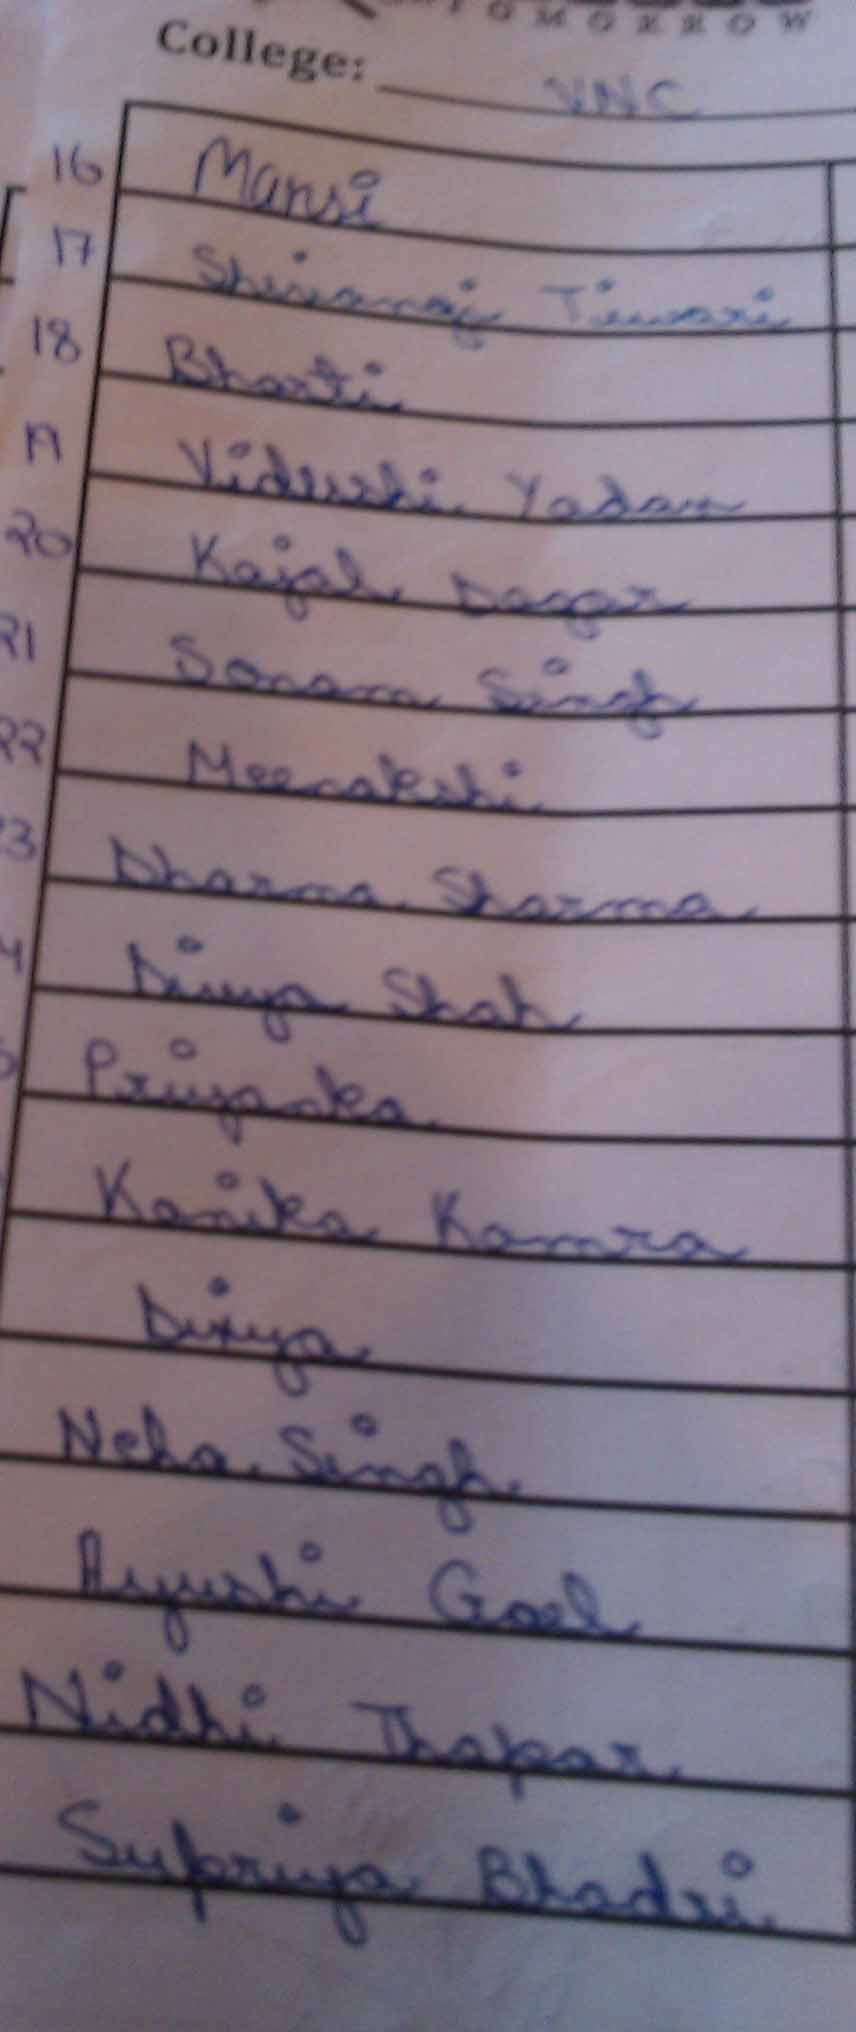 TOMORROW
College: VNC
16 Mansi
17 Shivangi Tiwari
18 Bharti
19 Vidushi Yadav
20 Kajal Dagar
21 Sonam Singh
22 Meenakshi
3 Dharma Sharma
4 Divya Shah
Priyanka
Kanika Kamra
Divya
Neha Singh
Ayushi Goel
Nidhi Thapar
Supriya Bhadri